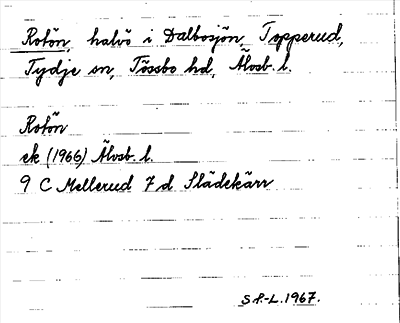 Rotön, halvö i Dalbosjön, Topperud,
Tydje sn, Tössbo hd, Älvsb. l.
Rotön
ek (1966) Älvsb. l.
9 C Mellerud 7 d Slädekärr
S P.-L. 1967.